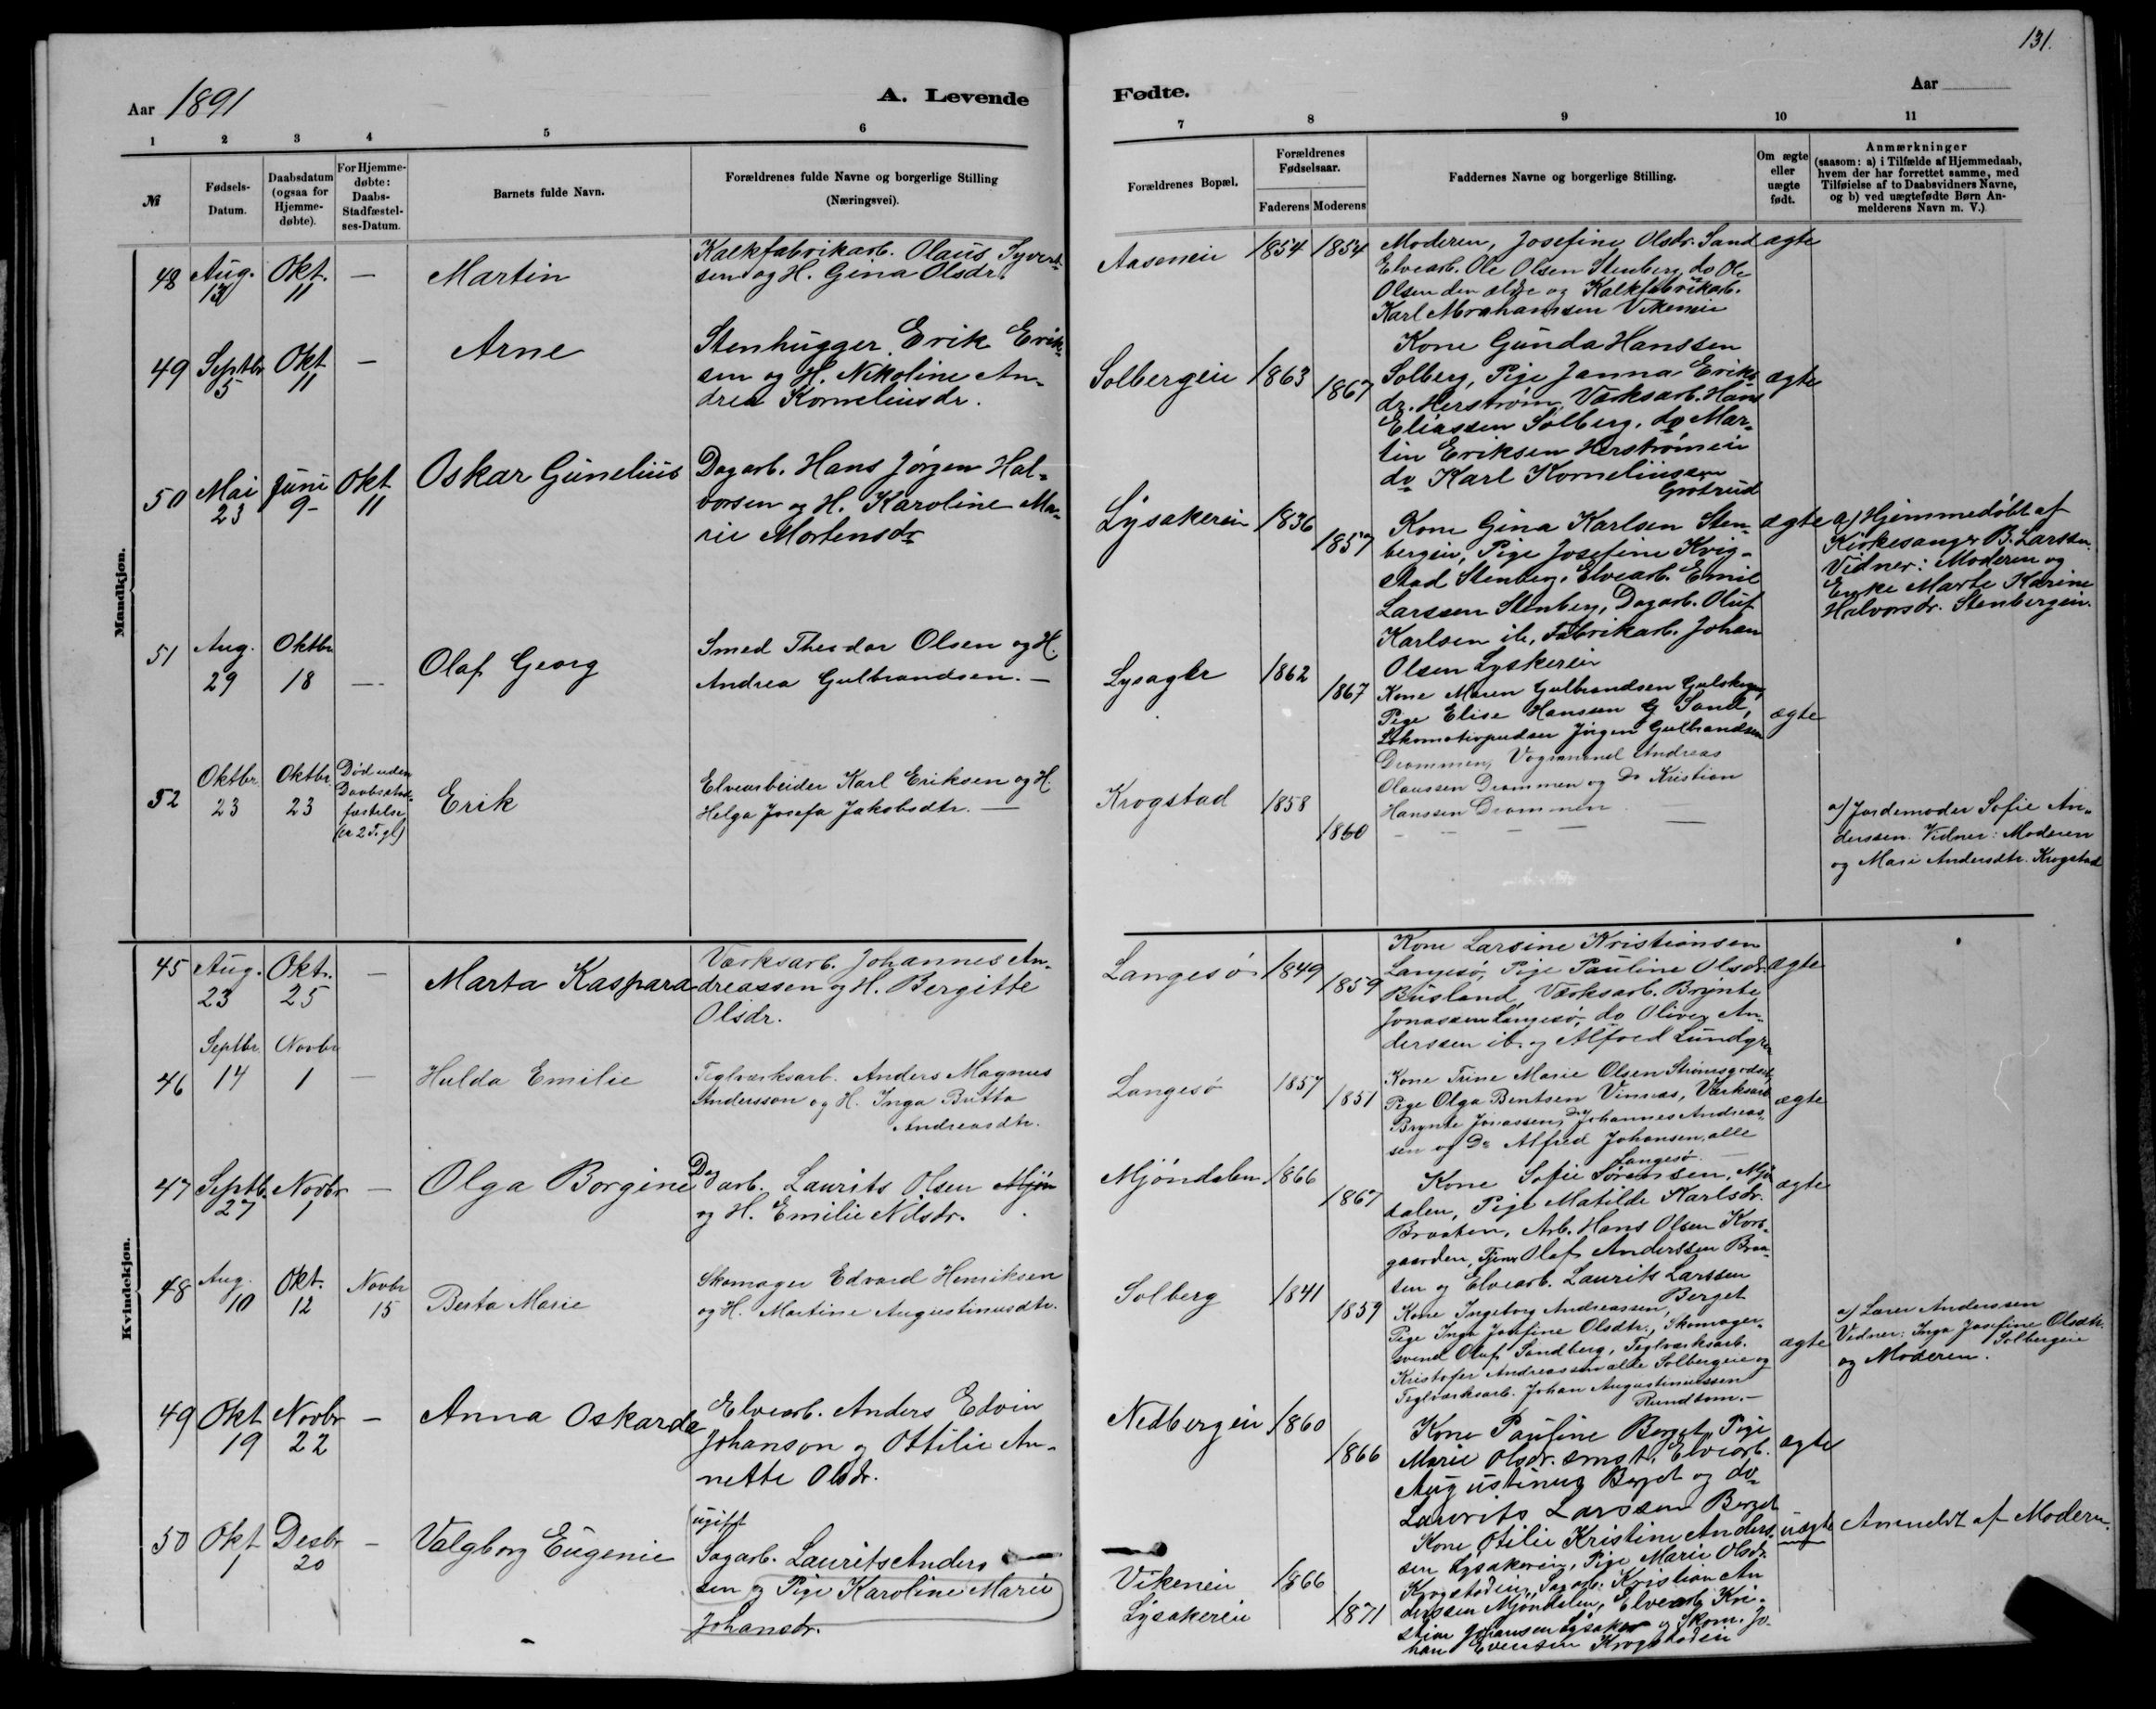 131.
Aar 1891
A. Levende
Fødte.
Aar
1 2 3 4 5 6 7 8 9 10 11
№
Fødsels-
Datum.
Daabsdatum
(ogsaa for
Hjemme-
døbte).
For Hjemme-
døbte:
Daabs-
Stadfæstel-
ses-Datum.
Barnets fulde Navn.
Forældrenes fulde Navne og borgerlige Stilling
(Næringsvei).
Forældrenes Bopæl.
Forældrenes
Fødselsaar.
Faderens Moderens
Faddernes Navne og borgerlige Stilling.
Om ægte
eller
uægte
født.
Anmærkninger
(saasom: a) i Tilfælde af Hjemmedaab,
hvem der har forrettet samme, med
Tilføielse af to Daabsvidners Navne,
og b) ved uægtefødte Børn An-
melderens Navn m. V.)
Mandkjøn.
48 Aug. 13 Okt. 11 — Martin
Kalkfabrikarb. Olaus Syvert-
sen og H. Gina Olsdr.
Aaseneie 1854 1854
Moderen, Josefine Olsdr. Sand
Elvearb. Ole Olsen Stenberg, do Ole
Olsen den ældre og Kalkfabrikarb.
Karl Abrahamsen Vikeneie
ægte
49 Septbr 5 Okt 11 — Arne
Stenhugger Erik Erik-
sen og H. Nikoline An-
drea Korneliusdr.
Solbergeie 1863 1867
Kone Gunda Hanssen
Solberg, Pige Janna Eriks-
dr. Herstrøm, Værksarb. Hans
Eliassen Solberg, do Mar-
tin Eriksen Herstrømeie
do Karl Korneliussen
Grøtrud
ægte
50 Mai 23 Juni 9 Okt 11 Oskar Gunelius
Dagarb. Hans Jørgen Hal-
vorsen og H. Karoline Ma-
rie Mortensdr
Lysakereie 1836 1857
Kone Gina Karlsen Sten-
bergeie, Pige Josefine Krig-
stad Stenberg, Elvearb. Emil
Larssen Stenberg, Dagarb. Oluf
Karlsen ib., Fabrikarb. Johan
Olsen Lyskereie
ægte
a) Hjemmedøbt af
Kirkesanger B. Larssen.
Vidner: Moderen og
Enke Marte Karine
Halvorsdr. Stenbergeie.
51 Aug. 29 Oktbr 18 — Olaf Georg
Smed Theodor Olsen og H.
Andrea Gulbrandsen. —
Lysager 1862 1867
Kone Maren Gulbrandsen Gulskogen,
Pige Elise Hanssen G Sand,
Lokomotivpudser Jørgen Gulbrandsen
Drammen, Vognmand Andreas
Olaussen Drammen og Do Kristian
Hanssen Drammen
ægte
52 Oktbr. 23 Oktbr. 23
Død uden
Daabsstad-
fæstelse
Erik
Elvearbeider Karl Eriksen og H.
Helga Josefa Jakobsdtr. —
Krogstad 1858 1860
— — — —
a) Jordemoder Sofie An-
derssen. Vidner: Moderen
og Mari Andersdtr. Krogstad
Kvindekjøn.
45 Aug. 23 Okt. 25 — Marta Kaspara
Værksarb. Johannes An-
dreassen og H. Bergitte
Olsdr.
Langesø 1849 1859
Kone Larsine Kristiansen
Langesø, Pige Pauline Olsdr.
Busland, Værksarb. Brynte
Jonassen Langesø, do Oliver An-
derssen ib. og Alfred Lundgren
ægte
46 Septbr. 14 Novbr 1 — Hulda Emilie
Teglværksarb. Anders Magnus
Andersson og H. Inga Britta
Andreasdtr.
Langesø 1857 1851
Kone Trine Marie Olsen Strømsgodset,
Pige Olga Bentsen Vinnæs, Værksarb
Brynte Jonassen, Do Johannes Andreas-
sen og Do Alfred Johansen, alle
Langesø. —
ægte
47 Septb. 27 Novbr 1 — Olga Borgine
Dagarb. Laurits Olsen Mjøn
og H. Emilie Nilsdr.
Mjøndalen 1866 1867
Kone Sofie Sørensen, Mjøn-
dalen, Pige Matilde Karlsdr.
Braaten, Arb. Hans Olsen Kors-
gaarden, Tjener Olaf Anderssen Braa-
ten og Elvearb. Laurits Larssen
Berget
ægte
48 Aug. 10 Okt. 12 Novbr 15 Berta Marie
Skomager Edvard Henriksen
og H. Martine Augustinusdtr.
Solberg 1841 1859
Kone Ingeborg Andreassen,
Pige Inga Josefine Olsdtr., Skomager-
svend Oluf Sandberg, Teglværksarb.
Kristofer Andreassen alle Solbergeie og
Teglværksarb. Johan Augustinussen
Rundtom. —
ægte
a) Lærer Anderssen
Vidner: Inga Josefine Olsdtr.
Solbergeie
og Moderen.
49 Okt 19 Novbr 22 — Anna Oskarda
Elvearb. Anders Edvin
Johanson og Ottilie An-
nette Olsdr.
Nedbergeie 1860 1866
Kone Pauline Berget, Pige
Marie Olsdr. smst, Elvearb.
Augustinus Berget og do
Laurits Larssen Berget
ægte
50 Okt 1 Desbr 20 — Valgborg Eugenie
ugift
Sagarb. Laurits Anders
sen og Pige Karoline Marie
Johansdr.
Vikeneie 1866
Lysakereie 1871
Kone Otilie Kristine Anders-
sen Lysakereie, Pige Marie Olsdr.
Krogstadeie, Sagarb. Kristian An
derssen Mjøndalen, Elvearb. Kri-
stian Johansen Lysaker og Skom. Jo-
han Evensen Krogstadeie
uægte Anmeldt af Moderen.